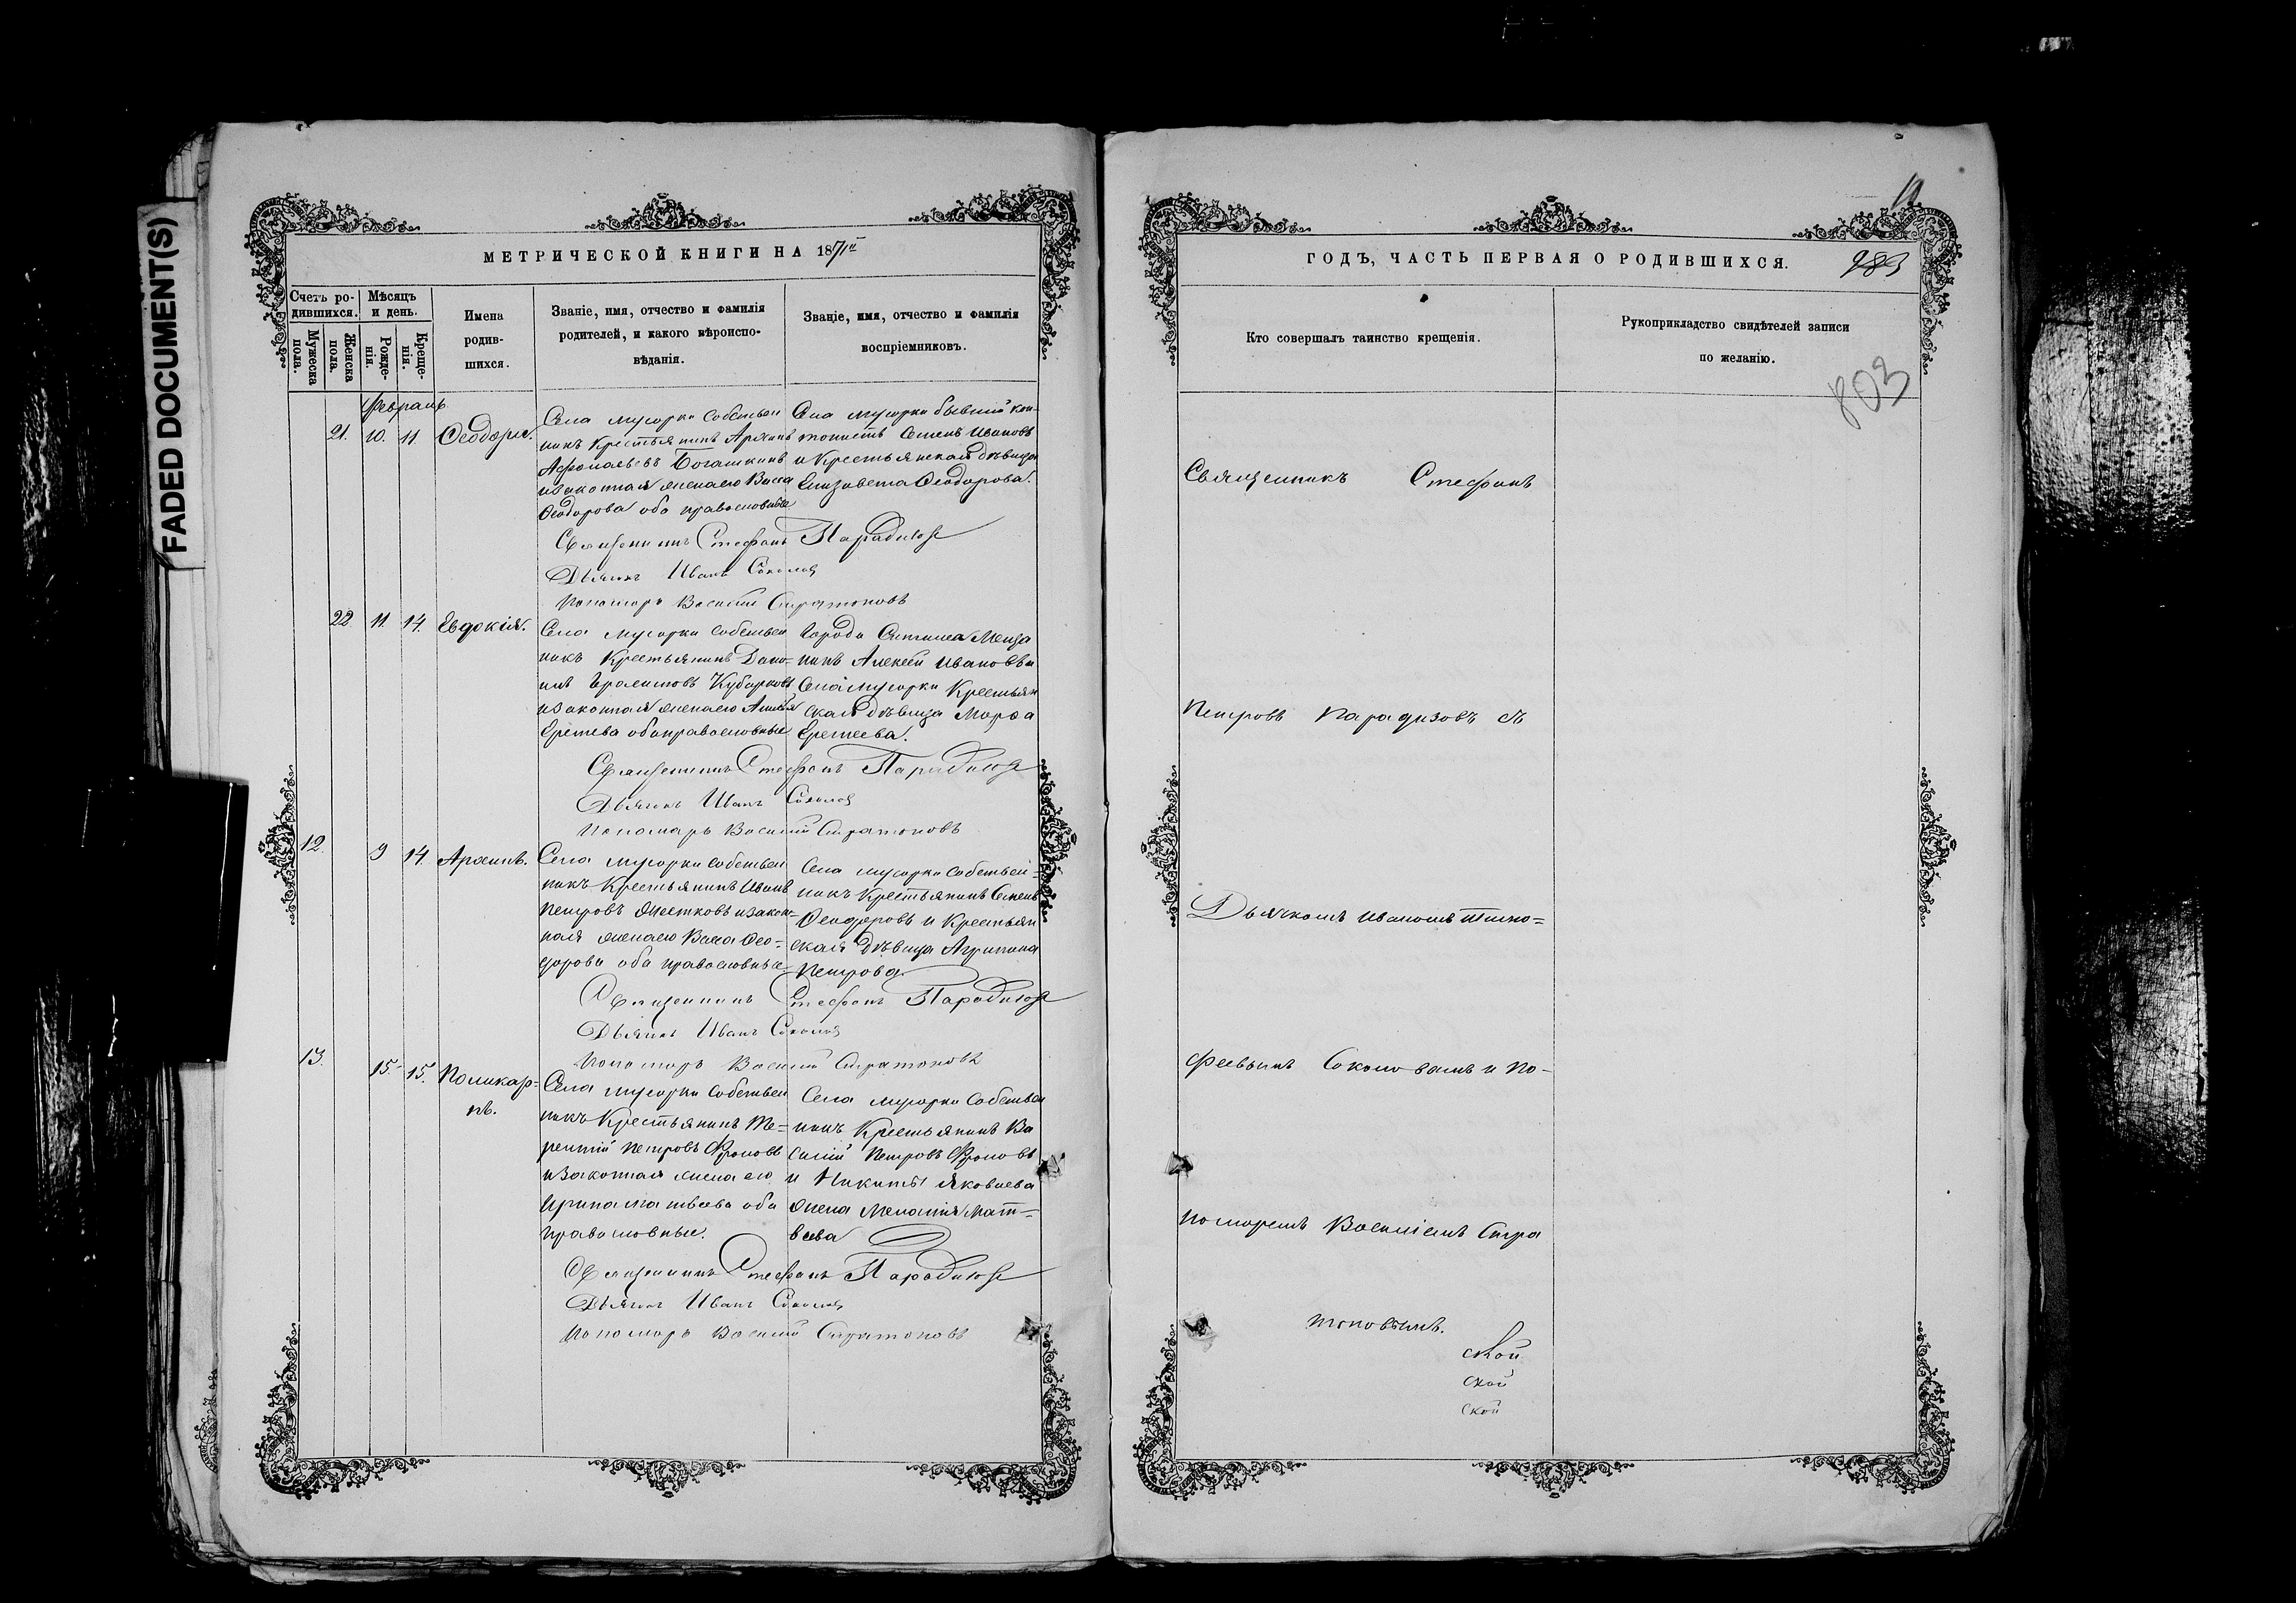 FADED DOCUMENT(S)
МЕТРИЧЕСКОЙ КНИГИ НА 1871й
Счетъ ро-
дившихся.
Мужеска
пола.
Женска
пола.
Мѣсяцъ
и день.
Рожде-
нія.
Креще-
нія.
Имена
родив-
шихся.
Званіе, имя, отчество и фамилія
родителей, и какого вѣроиспо-
вѣданія.
Званіе, имя, отчество и фамилія
воспріемниковъ.
Февраль
21. 10. 11.
Села Мусорки собствен
никъ Крестьянинъ
Богашкинъ
и законная жена его Васса
Ѳеодорова оба православные
Села Мусорки бывший кан-
тонистъ Семенъ Ивановъ
и Крестьянская дѣвица
Елизавета Ѳеодорова.
Священникъ Стефанъ Парадизов
Дьячекъ Иванъ Соколов
Пономарь Василий Стратоновъ
22. 11. 14. Евдокія.
Села Мусорки собствен
никъ Крестьянинъ Дани-
илъ Кубарковъ
и законная жена его
оба православные
Города
нинъ Алексей Ивановъ и
Села Мусорки Крестьян
ская дѣвица Марѳа
Еремеева.
Священникъ Стефанъ Парадизов
Дьячекъ Иванъ Соколов
Пономарь Василий Стратоновъ
12. 9 14.
Села Мусорки собствен
никъ Крестьянинъ Иванъ
Петровъ и закон-
ная жена его Васса Ѳео-
дорова оба православные
Села Мусорки собствен-
никъ Крестьянинъ Семенъ
Ѳеодоровъ и Крестьян
ская дѣвица Агрипина
Петрова
Священникъ Стефанъ Парадизов
Дьячекъ Иванъ Соколов
Пономарь Василий Стратоновъ
13. 15. 15. Поликар-
пъ.
Села Мусорки собствен
никъ Крестьянинъ Те-
рентий Петровъ Фроловъ
и законная жена его
Ирина Матвеева оба
православные.
Села Мусорки собствен
никъ Крестьянинъ Ва
силий Петровъ Фроловъ
и Никиты Яковлева
жена Мелания Мат-
веева
Священникъ Стефанъ Парадизов
Дьячекъ Иванъ Соколов
Пономарь Василий Стратоновъ
ГОДЪ, ЧАСТЬ ПЕРВАЯ О РОДИВШИХСЯ.
803
Кто совершалъ таинство крещенія.
Рукоприкладство свидѣтелей записи
по желанію.
Священникъ Стефанъ
Петровъ Парадизовъ съ
Дьячкомъ Иваномъ Тимо=
феевымъ Соколовымъ и По-
номаремъ Василіемъ Стра
тоновымъ.
ской
ской
ской